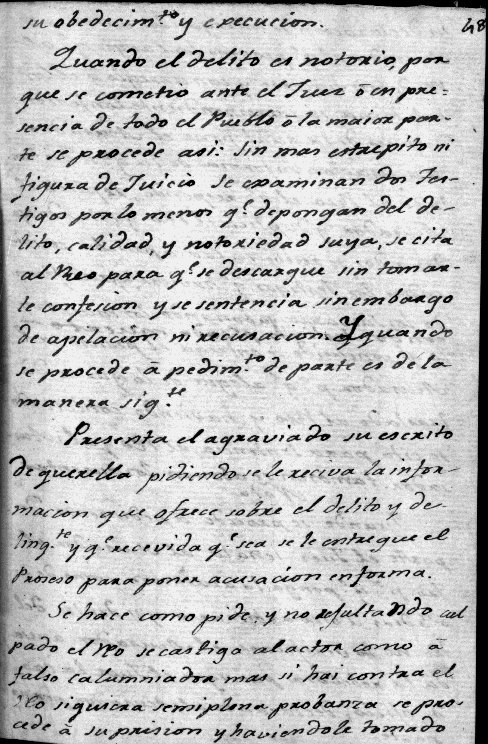 48
su obedecim.to y execucion.
Quando el delito es notorio, por
que se cometio ante el Juez ō en pre=
sencia de todo el Pueblo ō la maior par-
te se procede asi: sin mas estrepito ni
figura de Juicio se examinan dos Tes-
tigos por lo menos q.e depongan del de-
lito, calidad, y notoriedad suya, se cita
al Reo para q.e se descargue sin tomar-
le confesion y se sentencia sin embargo
de apelacion ni recusacion. Y quando
se procede ā pedim.to de parte es de la
manera sig.te
Presenta el agraviado su escrito
de querella pidiendo se le reciva la infor-
macion que ofrece sobre el delito y de-
linq.te y q.e recevida q.e sea se le entregue el
Proseso para poner acusacion en forma.
Se hace como pide, y no resultando cul
pado el reo se castiga al actor como ā
falso calumniador mas si hai contra el
Reo siquiera semiplena probanza se pro-
cede ā su prision y haviendole tomado